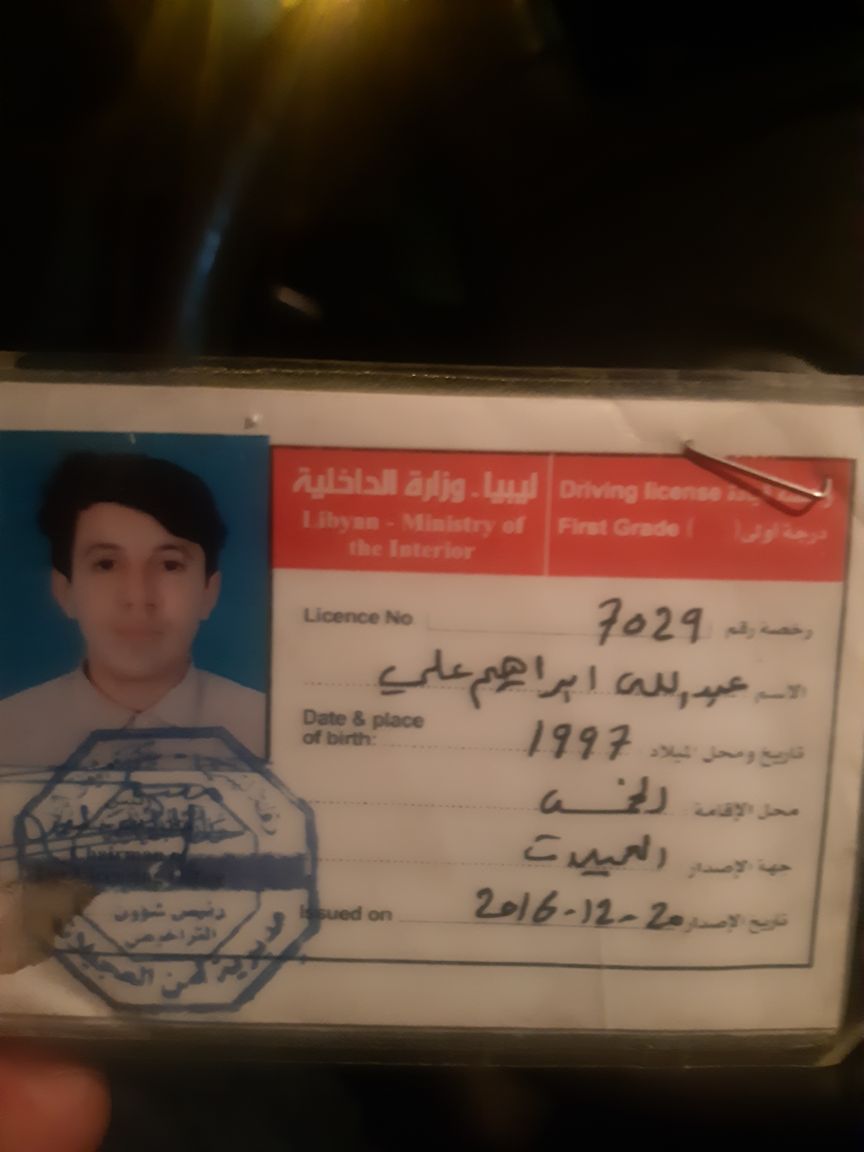 ليبيا - وزارة الداخلية
Libyan - Ministry of
the Interior
Driving license
First Grade ( ) درجة أولى
Licence No 7029 رخصة رقم
الاسم عبدالله ابراهيم علي
Date & place
of birth: 1997 تاريخ ومحل الميلاد
محل الإقامة الخمس
جهة الإصدار
Issued on 2016-12-20 تاريخ الإصدار
Chairman of
رئيس شؤون
التراخيص